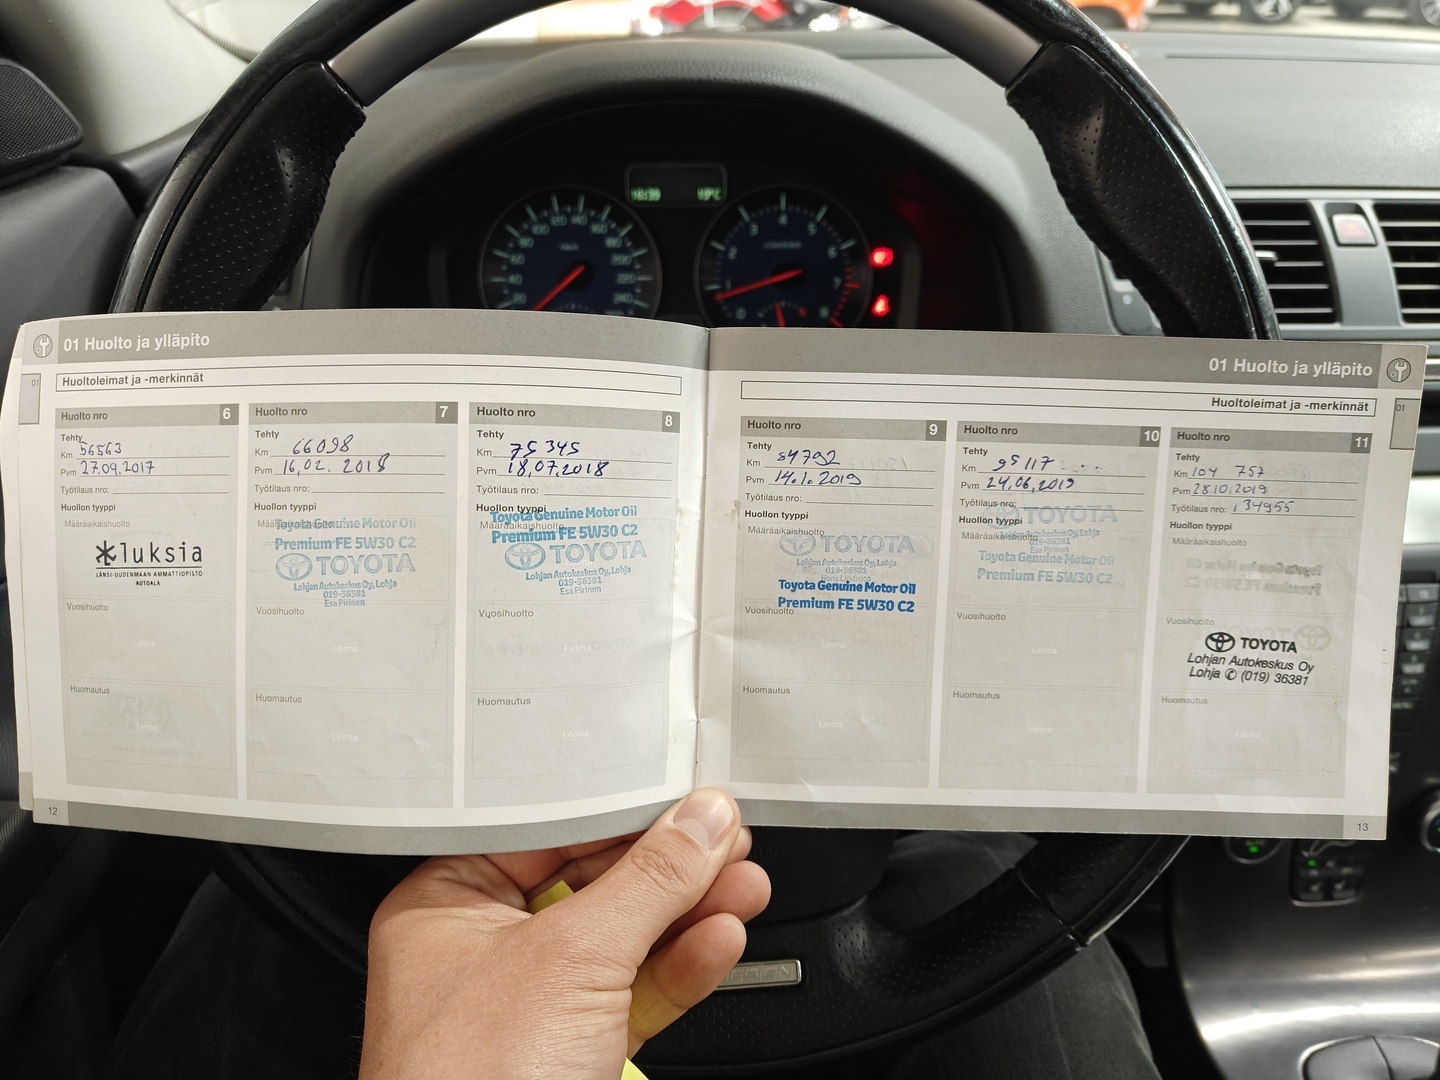 16:39 19°C
01 Huolto ja ylläpito
01
Huoltoleimat ja -merkinnät
Huolto nro 6
Tehty
Km 56563
Pvm 27.09.2017
Työtilaus nro:
Huollon tyyppi
Määräaikaishuolto
luksia
LÄNSI-UUDENMAAN AMMATTIOPISTO
AUTOALA
Vuosihuolto
Leima
Huomautus
Leima
12
Huolto nro 7
Tehty
Km 66098
Pvm 16.02. 2018
Työtilaus nro:
Huollon tyyppi
Määräaikaishuolto
Toyota Genuine Motor Oil
Premium FE 5W30 C2
TOYOTA
Lohjan Autokeskus Oy, Lohja
019-36381
Esa Pirinen
Vuosihuolto
Leima
Huomautus
Leima
Huolto nro 8
Tehty
Km 75 345
Pvm 18.07.2018
Työtilaus nro:
Huollon tyyppi
Määräaikaishuolto
Toyota Genuine Motor Oil
Premium FE 5W30 C2
TOYOTA
Lohjan Autokeskus Oy, Lohja
019-36381
Esa Pirinen
Vuosihuolto
Leima
Huomautus
Leima
01 Huolto ja ylläpito
01
Huoltoleimat ja -merkinnät
Huolto nro 9
Tehty
Km 84792
Pvm 14.1.2019
Työtilaus nro:
Huollon tyyppi
Määräaikaishuolto
TOYOTA
Lohjan Autokeskus Oy, Lohja
019-36381
Toyota Genuine Motor Oil
Premium FE 5W30 C2
Vuosihuolto
Leima
Huomautus
Leima
Huolto nro 10
Tehty
Km 95 117
Pvm 24.06.2019
Työtilaus nro:
Huollon tyyppi
Määräaikaishuolto
TOYOTA
Lohjan Autokeskus Oy, Lohja
019-36381
Esa Pirinen
Toyota Genuine Motor Oil
Premium FE 5W30 C2
Vuosihuolto
Leima
Huomautus
Leima
Huolto nro 11
Tehty
Km 104 757
Pvm 28.10.2019
Työtilaus nro: 134955
Huollon tyyppi
Määräaikaishuolto
Vuosihuolto
TOYOTA
Lohjan Autokeskus Oy
Lohja ✆ (019) 36381
Huomautus
13